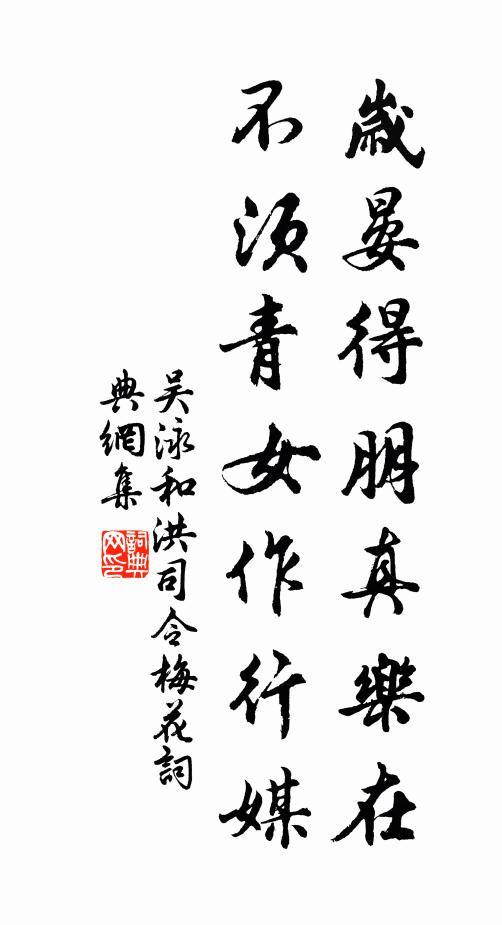 歲晏得朋真樂在
不須青女作行媒
吳泳和洪司令梅花詞
典網集
詞典
网印